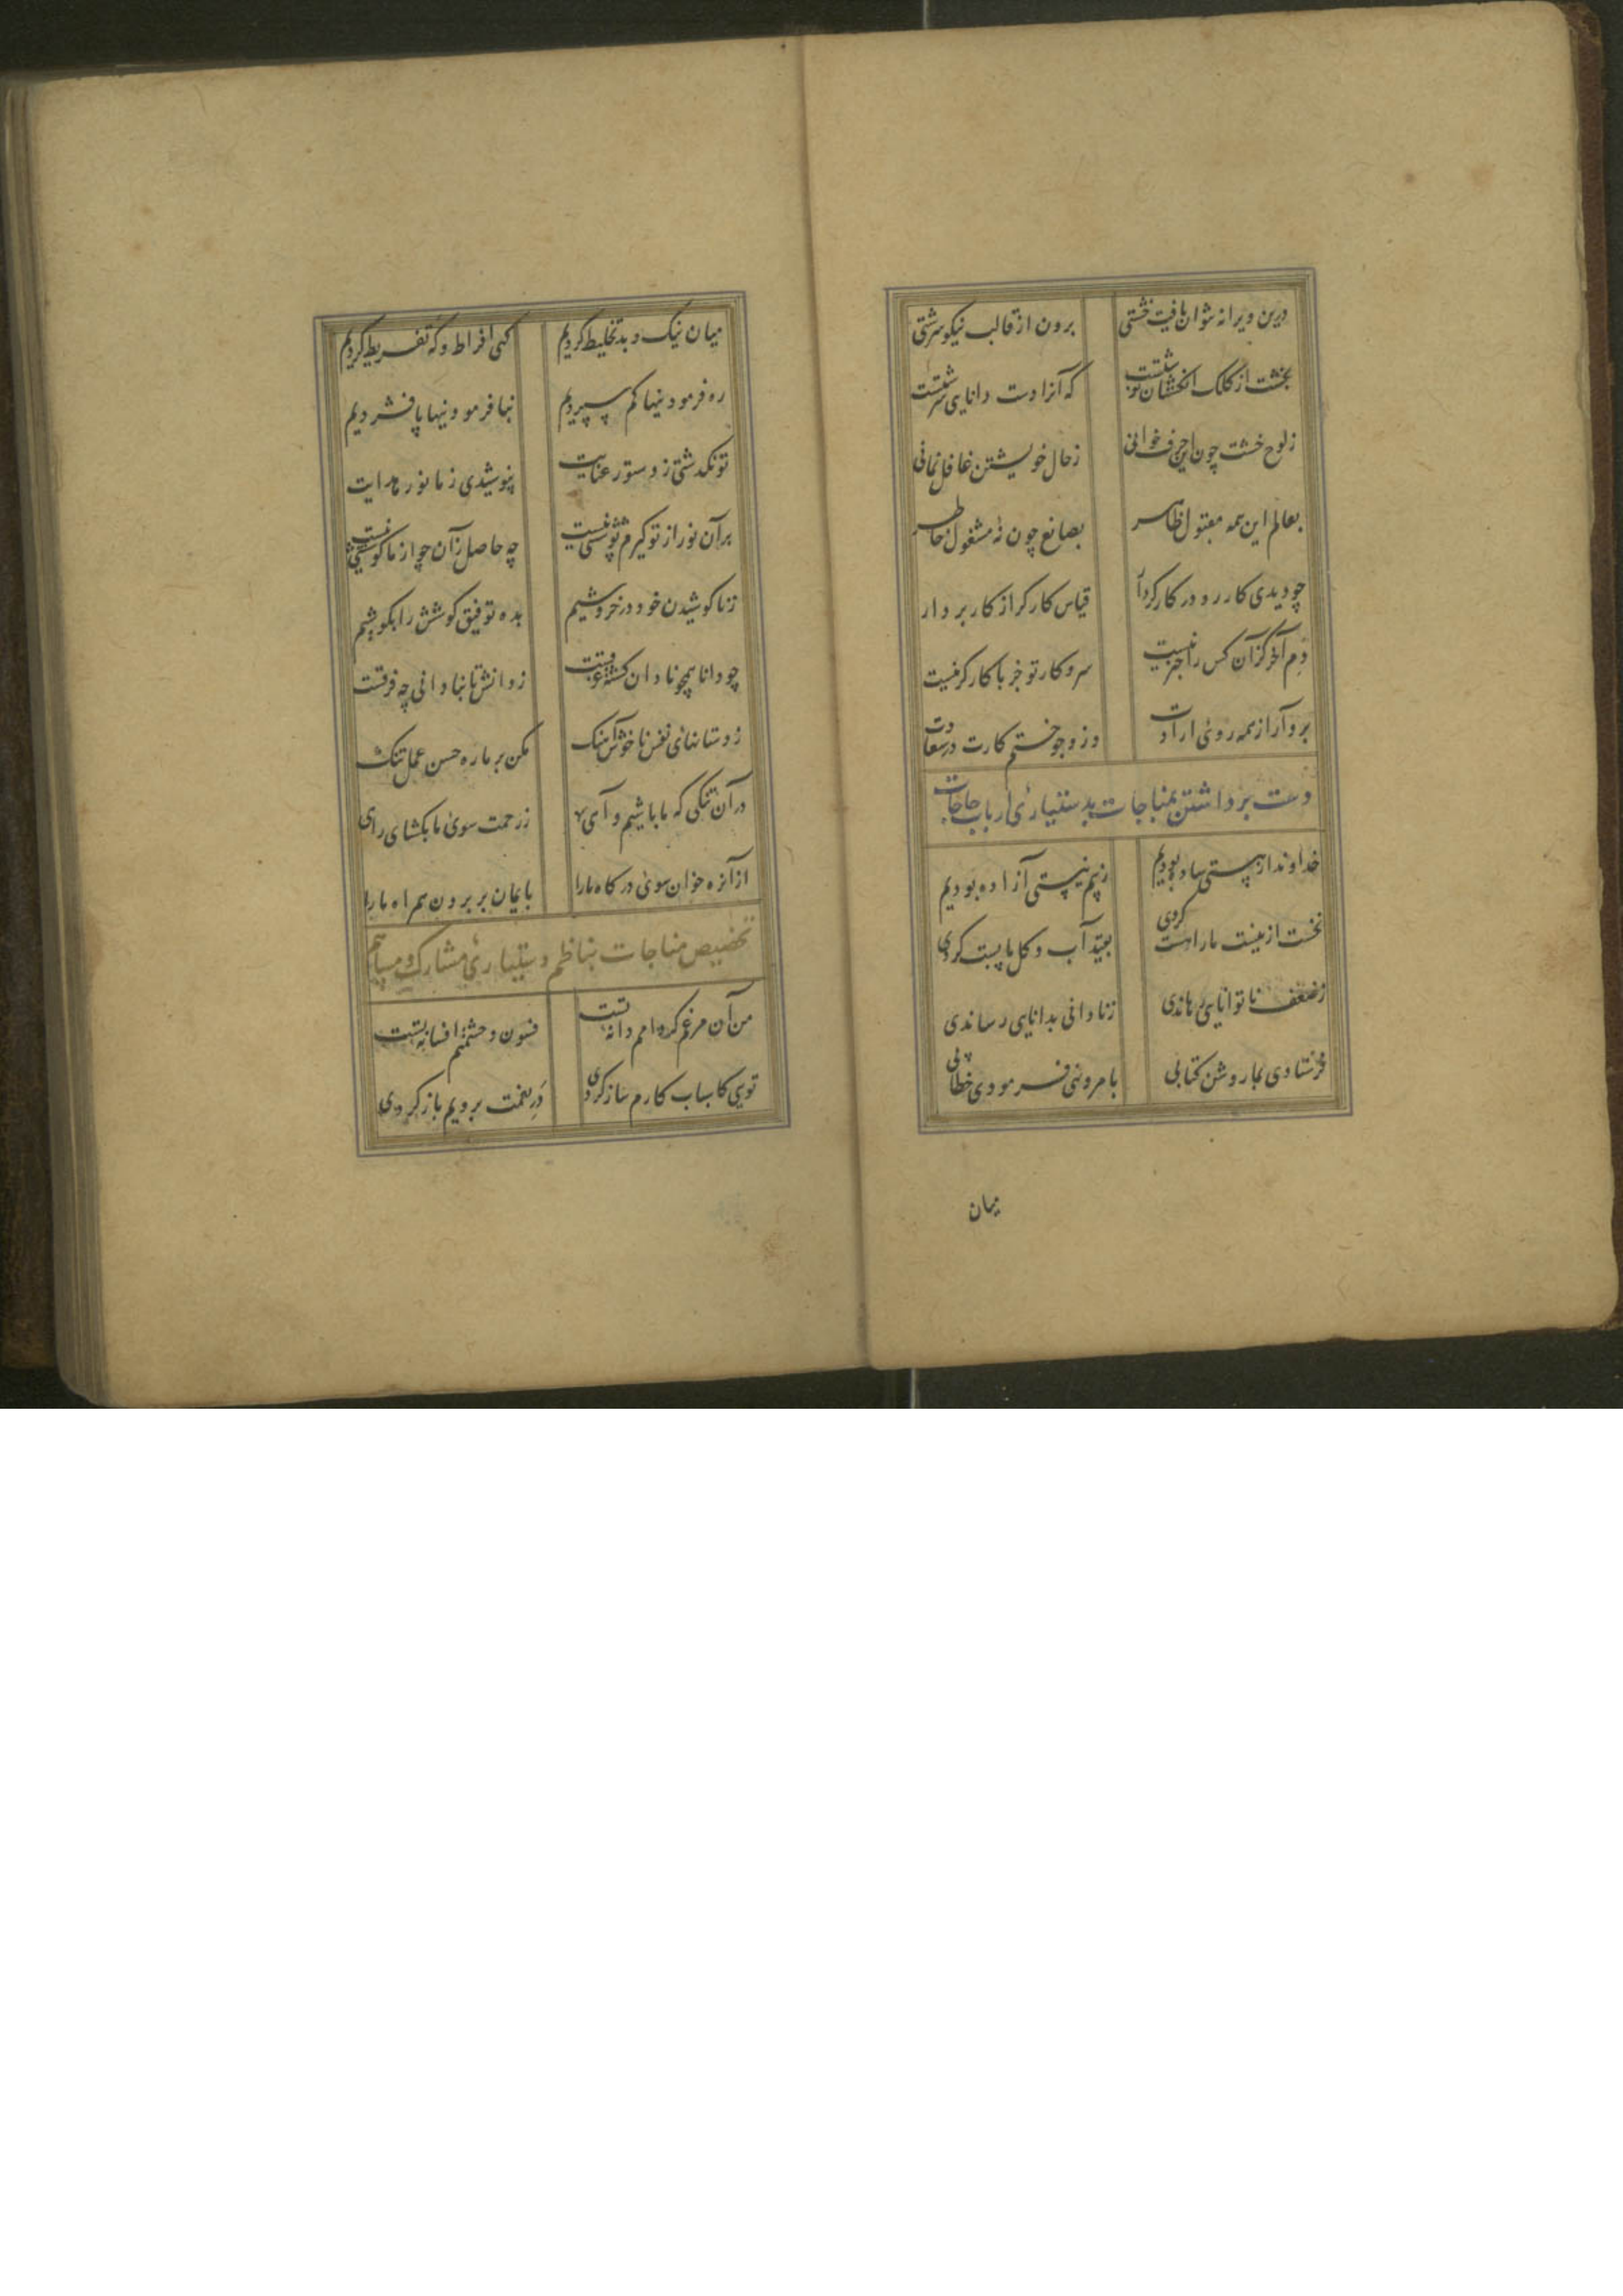 درین ویرانه نتوان یافت خشتی برون از قالب نیکو سرشتی
بخشت از کلک انگشتان نوشتست که آنرا دست دانایی سرشتست
ز لوح خشت چون این حرف خوانی ز حال خویشتن غافل نمانی
بعالم این همه مصنوع ظاهر بصانع چون نهٔ مشغول خاطر
چو دیدی کار رو در کارگر دار قیاس کارگر از کار بردار
دم آخر کزان کس را خبر نیست سر و کار تو جز با کارگر نیست
برو آر از همه روی ارادت وزو جو ختم کارت در سعادت
دست برداشتن بمناجات بدستیاری ارباب حاجات
خداوندا ز هستی ساده بودیم ز بیم نیستی آزاده بودیم
نخست از نیست ما را هست کردی بقید آب و گل پا بست کردی
ز ضعف ناتوانایی رهاندی ز نادانی بدانایی رساندی
فرستادی بما روشن کتابی بامر و نهی فرمودی خطابی
میان
میان نیک و بد تخلیط کردیم گهی افراط و گه تفریط کردیم
ره فرمودنیها کم سپردیم بنافرمودنیها پا فشردیم
تو نگذشتی ز دستور عنایت نپوشیدی ز ما نور هدایت
بر آن نور از تو گیرم پوششی نیست چه حاصل زآن چو از ما کوششی نیست
ز ناکوشیدن خود در خروشیم بده توفیق کوشش را بکوشیم
چو دانا همچو نادان گشته غرقست ز دانش تا بنادانی چه فرقست
ز دستانهای نفس ناخوش آهنگ مکن بر ما ره حسن عمل تنگ
در آن تنگی که ما باشیم و آهی ز رحمت سوی ما بگشای راهی
از آن ره خوان سوی درگاه ما را بایمان بر برون همراه ما را
تخصیص مناجات بناظم و دستیاری مشارک و مساهم
من آن مرغم که دامم دانهٔ تست فسون وحشتم افسانهٔ تست
تویی کاسباب کارم ساز کردی در نعمت برویم باز کردی